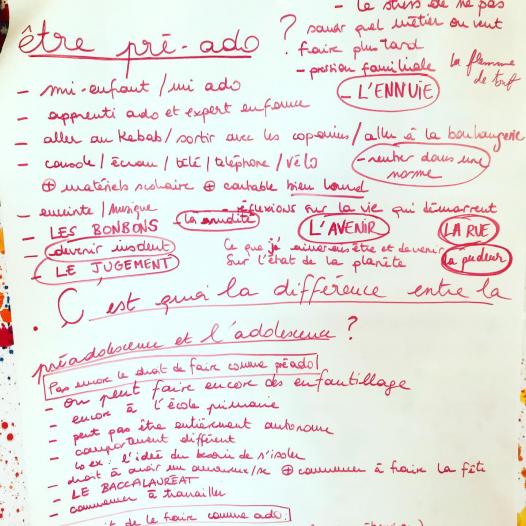 - le stress de ne pas
savoir quel métier on veut
être pré-ado ? faire plus tard
- pression familiale
la flemme de tout
- L'ENNUIE
- mi-enfant / mi ado
- apprenti ado et expert enfance
- aller au Kebab / sortir avec les copains / aller à la boulangerie
- console / écran / télé / téléphone / vélo
- rentrer dans une norme
⊕ matériels scolaire ⊕ cartable bien lourd
- enceinte / musique
- réflexions sur la vie qui démarrent
- LES BONBONS
- la nudité
L'AVENIR
LA RUE
- devenir insolent
Ce que j'aimerais être et devenir
la pudeur
- LE JUGEMENT
Sur l'état de la planète
. C'est quoi la différence entre la
préadolescence et l'adolescence ?
Pas encore le droit de faire comme préado
- on peut faire encore des enfantillage
- encore à l'école primaire
- peut pas être entièrement autonome
- comportement différent
ex : l'idée du besoin de s'isoler
- droit à avoir un amoureux/se ⊕ commencer à faire la fête
- LE BACCALAURÉAT
- commencer à travailler
de le faire comme ado :